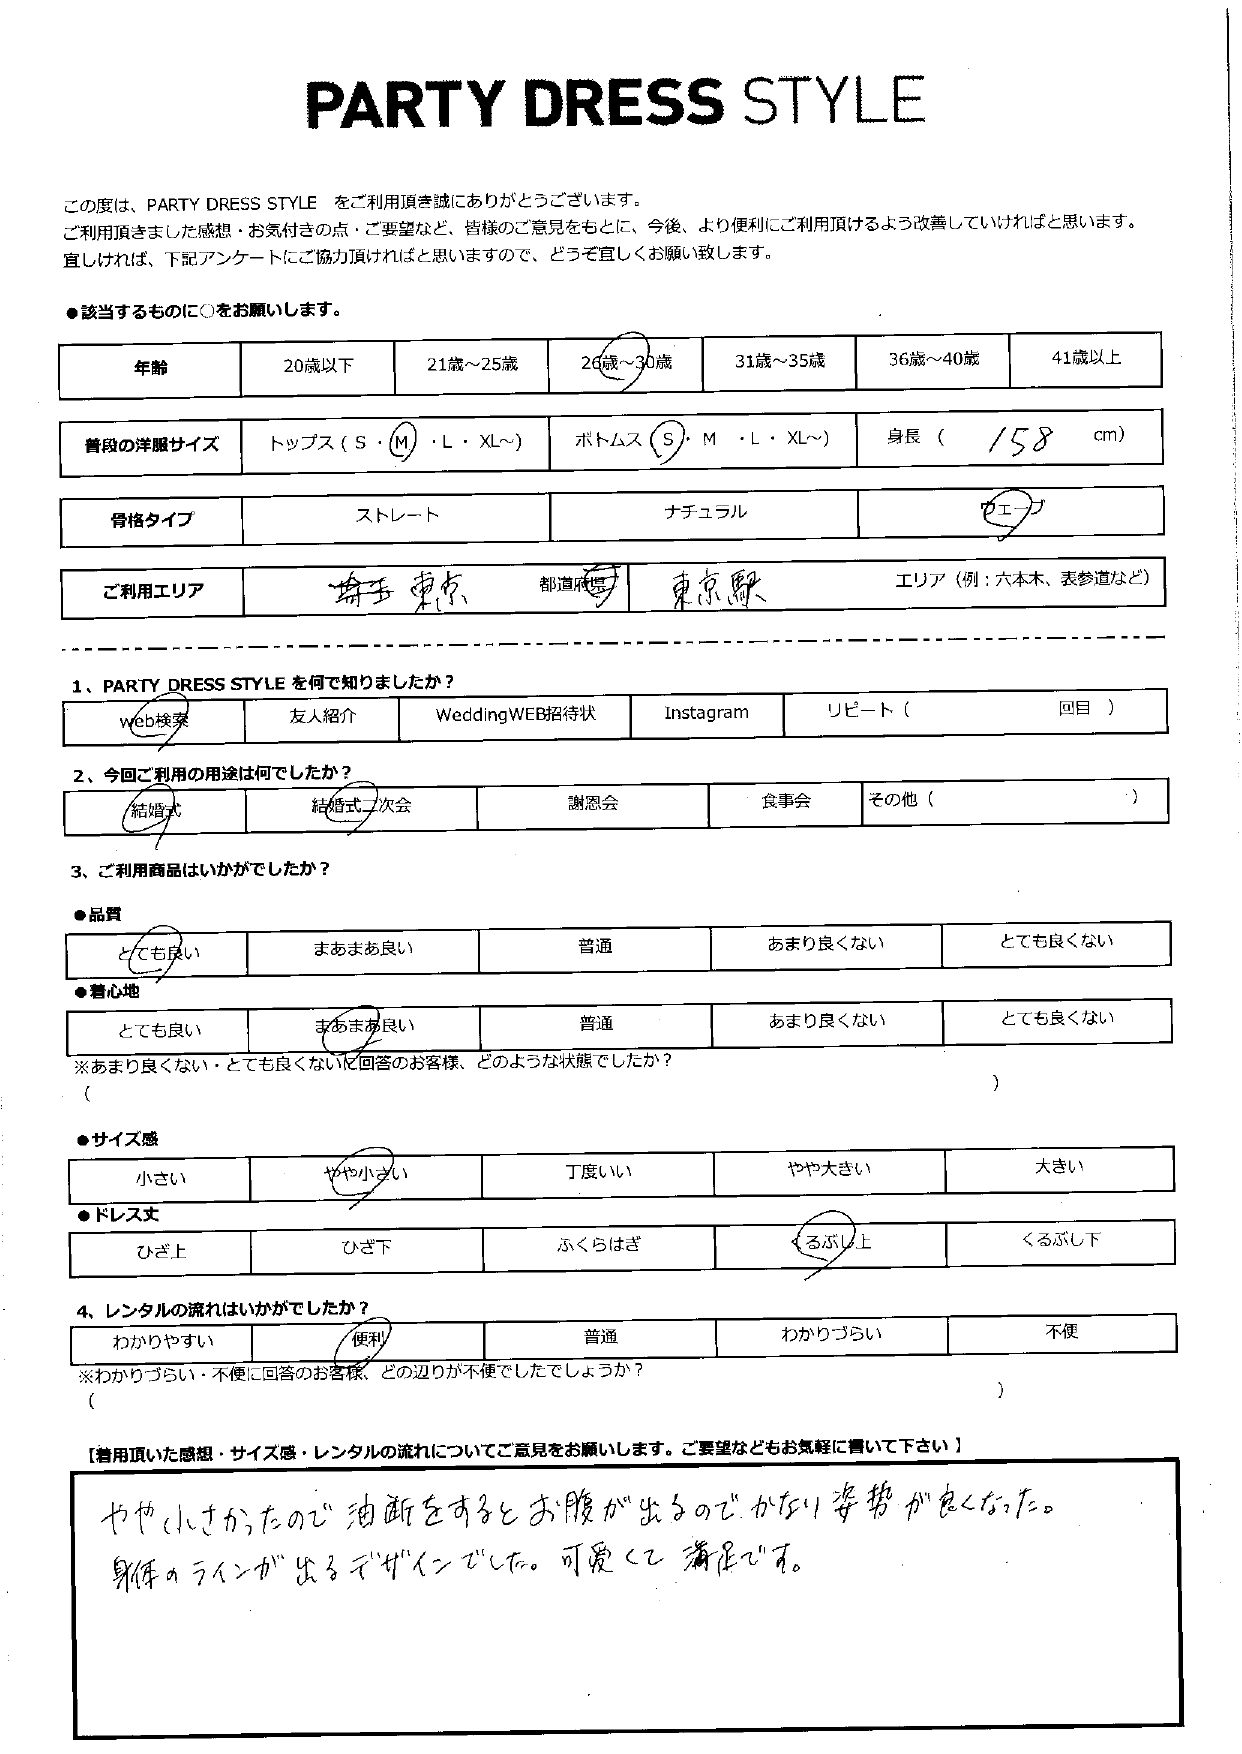 PARTY DRESS STYLE
この度は、PARTY DRESS STYLE をご利用頂き誠にありがとうございます。
ご利用頂きました感想・お気付きの点・ご要望など、皆様のご意見をもとに、今後、より便利にご利用頂けるよう改善していければと思います。
宜しければ、下記アンケートにご協力頂ければと思いますので、どうぞ宜しくお願い致します。
●該当するものに○をお願いします。
年齢 20歳以下 21歳～25歳 26歳～30歳 31歳～35歳 36歳～40歳 41歳以上
普段の洋服サイズ トップス ( S ・ M ・L ・ XL～) ボトムス ( S ・ M ・L ・ XL～) 身長 ( 158 cm)
骨格タイプ ストレート ナチュラル ウェーブ
ご利用エリア 埼玉 東京 都道府県 東京駅 エリア（例：六本木、表参道など）
1、PARTY DRESS STYLE を何で知りましたか？
web検索 友人紹介 WeddingWEB招待状 Instagram リピート ( 回目 )
2、今回ご利用の用途は何でしたか？
結婚式 結婚式二次会 謝恩会 食事会 その他 ( )
3、ご利用商品はいかがでしたか？
●品質
とても良い まあまあ良い 普通 あまり良くない とても良くない
●着心地
とても良い まあまあ良い 普通 あまり良くない とても良くない
※あまり良くない・とても良くないに回答のお客様、どのような状態でしたか？
( )
●サイズ感
小さい やや小さい 丁度いい やや大きい 大きい
●ドレス丈
ひざ上 ひざ下 ふくらはぎ くるぶし上 くるぶし下
4、レンタルの流れはいかがでしたか？
わかりやすい 便利 普通 わかりづらい 不便
※わかりづらい・不便に回答のお客様、どの辺りが不便でしたでしょうか？
( )
【着用頂いた感想・サイズ感・レンタルの流れについてご意見をお願いします。ご要望などもお気軽に書いて下さい 】
やや小さかったので油断をするとお腹が出るのでかなり姿勢が良くなった。
身体のラインが出るデザインでした。可愛くて満足です。